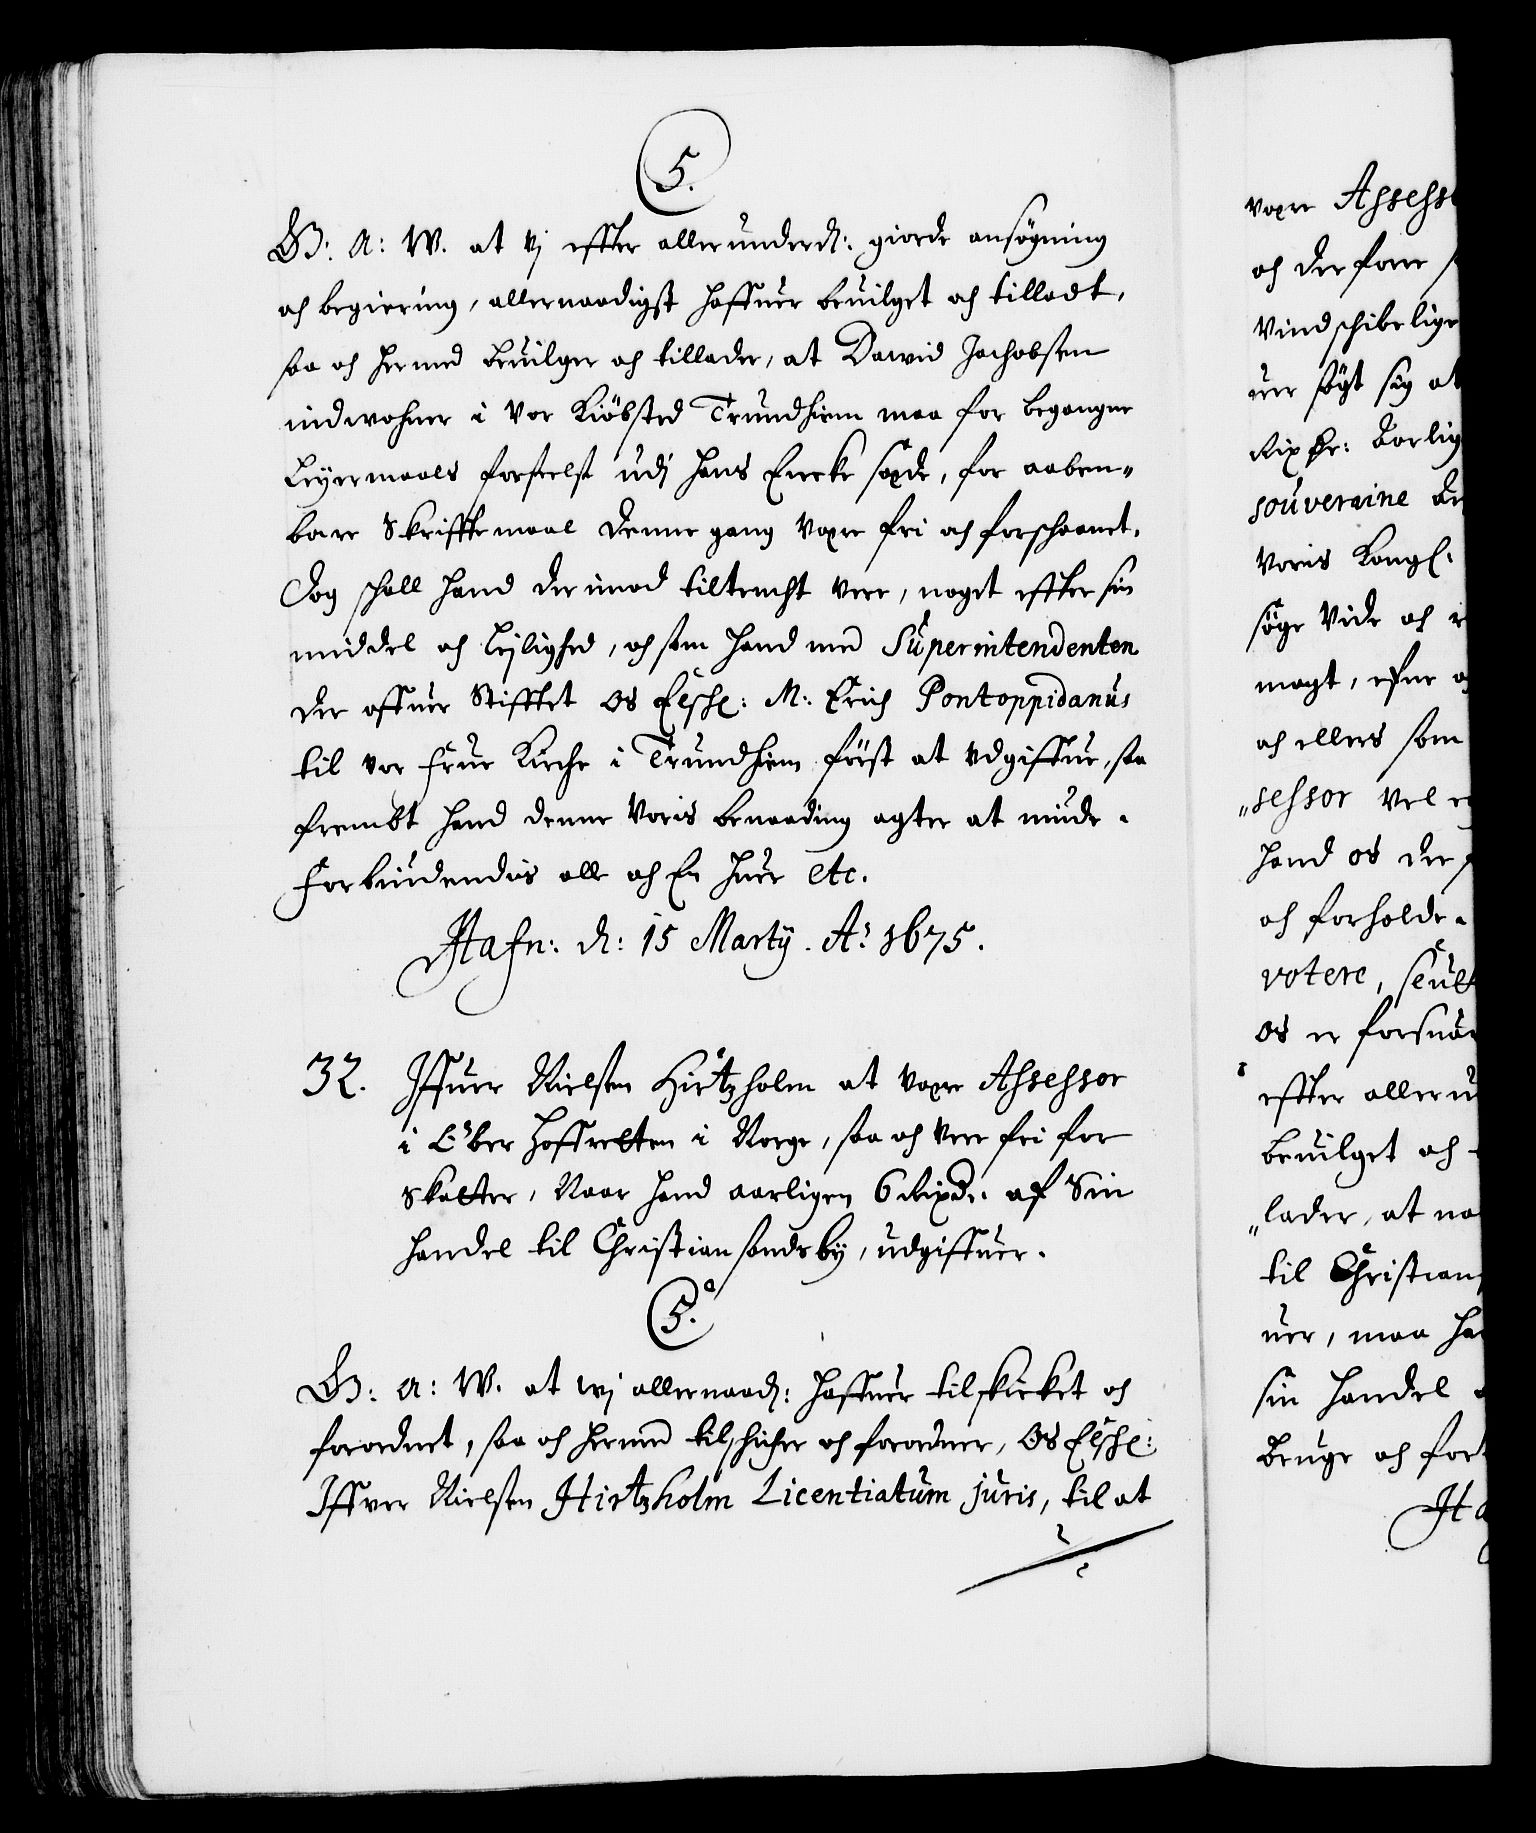 5.
G: A: W. at Vj effter allerunderd: giorde ansøgning
och begiering, allernaadigst haffuer beuilget och tilladt,
saa och hermed beuilger och tillader, at Dawid Jachobsen
indwohner i Vor Kiöbsted Trundhiem maa for begangne
Leyermaals forseelse udj hans Encke sæde, for aaben„
bare Skrifftemaal denne gang være fri och forschaanet,
Dog schall hand der imod tiltencht vere, noget effter sin
middel och Lejlighed, och som hand med Superintendenten
der offuer Stifftet os Elschel: M: Erich Pontoppidanus
til vor Frue Kirche i Trundhiem först at udgiffue, saa
frembt hand denne Voris benaading agter at niude.
Forbiudendis alle och En huer etc.
Hafn: d: 15 Martÿ. Aō 1675.
32. Iffuer Nielsen Hirtzholm at være Assessor
i Ober Hoffretten i Norge, saa och vere fri for
Skatter, Naar hand aarligen 6 Rixd: af Sin
handel til Christiansands bÿ, udgiffuer.
5.
G: A: W. at wj allernaad: haffuer tilskicket och
forordnet, saa och hermed tilschicher och forordner, Os Elschel:
Iffver Nielsen Hirtzholm Licentiatum juris, til at
være Assess
och der forre
Vindschibelige
uer søgt sig at
souveraine
Voris Kongl:
søge Vide och
magt, efne
och ellers som
„sessor vel
hand os der
och forholde.
votere,
os er forsuar
effter alleru
beuilget och
„lader, at na
til Christian
uer, maa ha
sin handel
bruge och fort
Ha